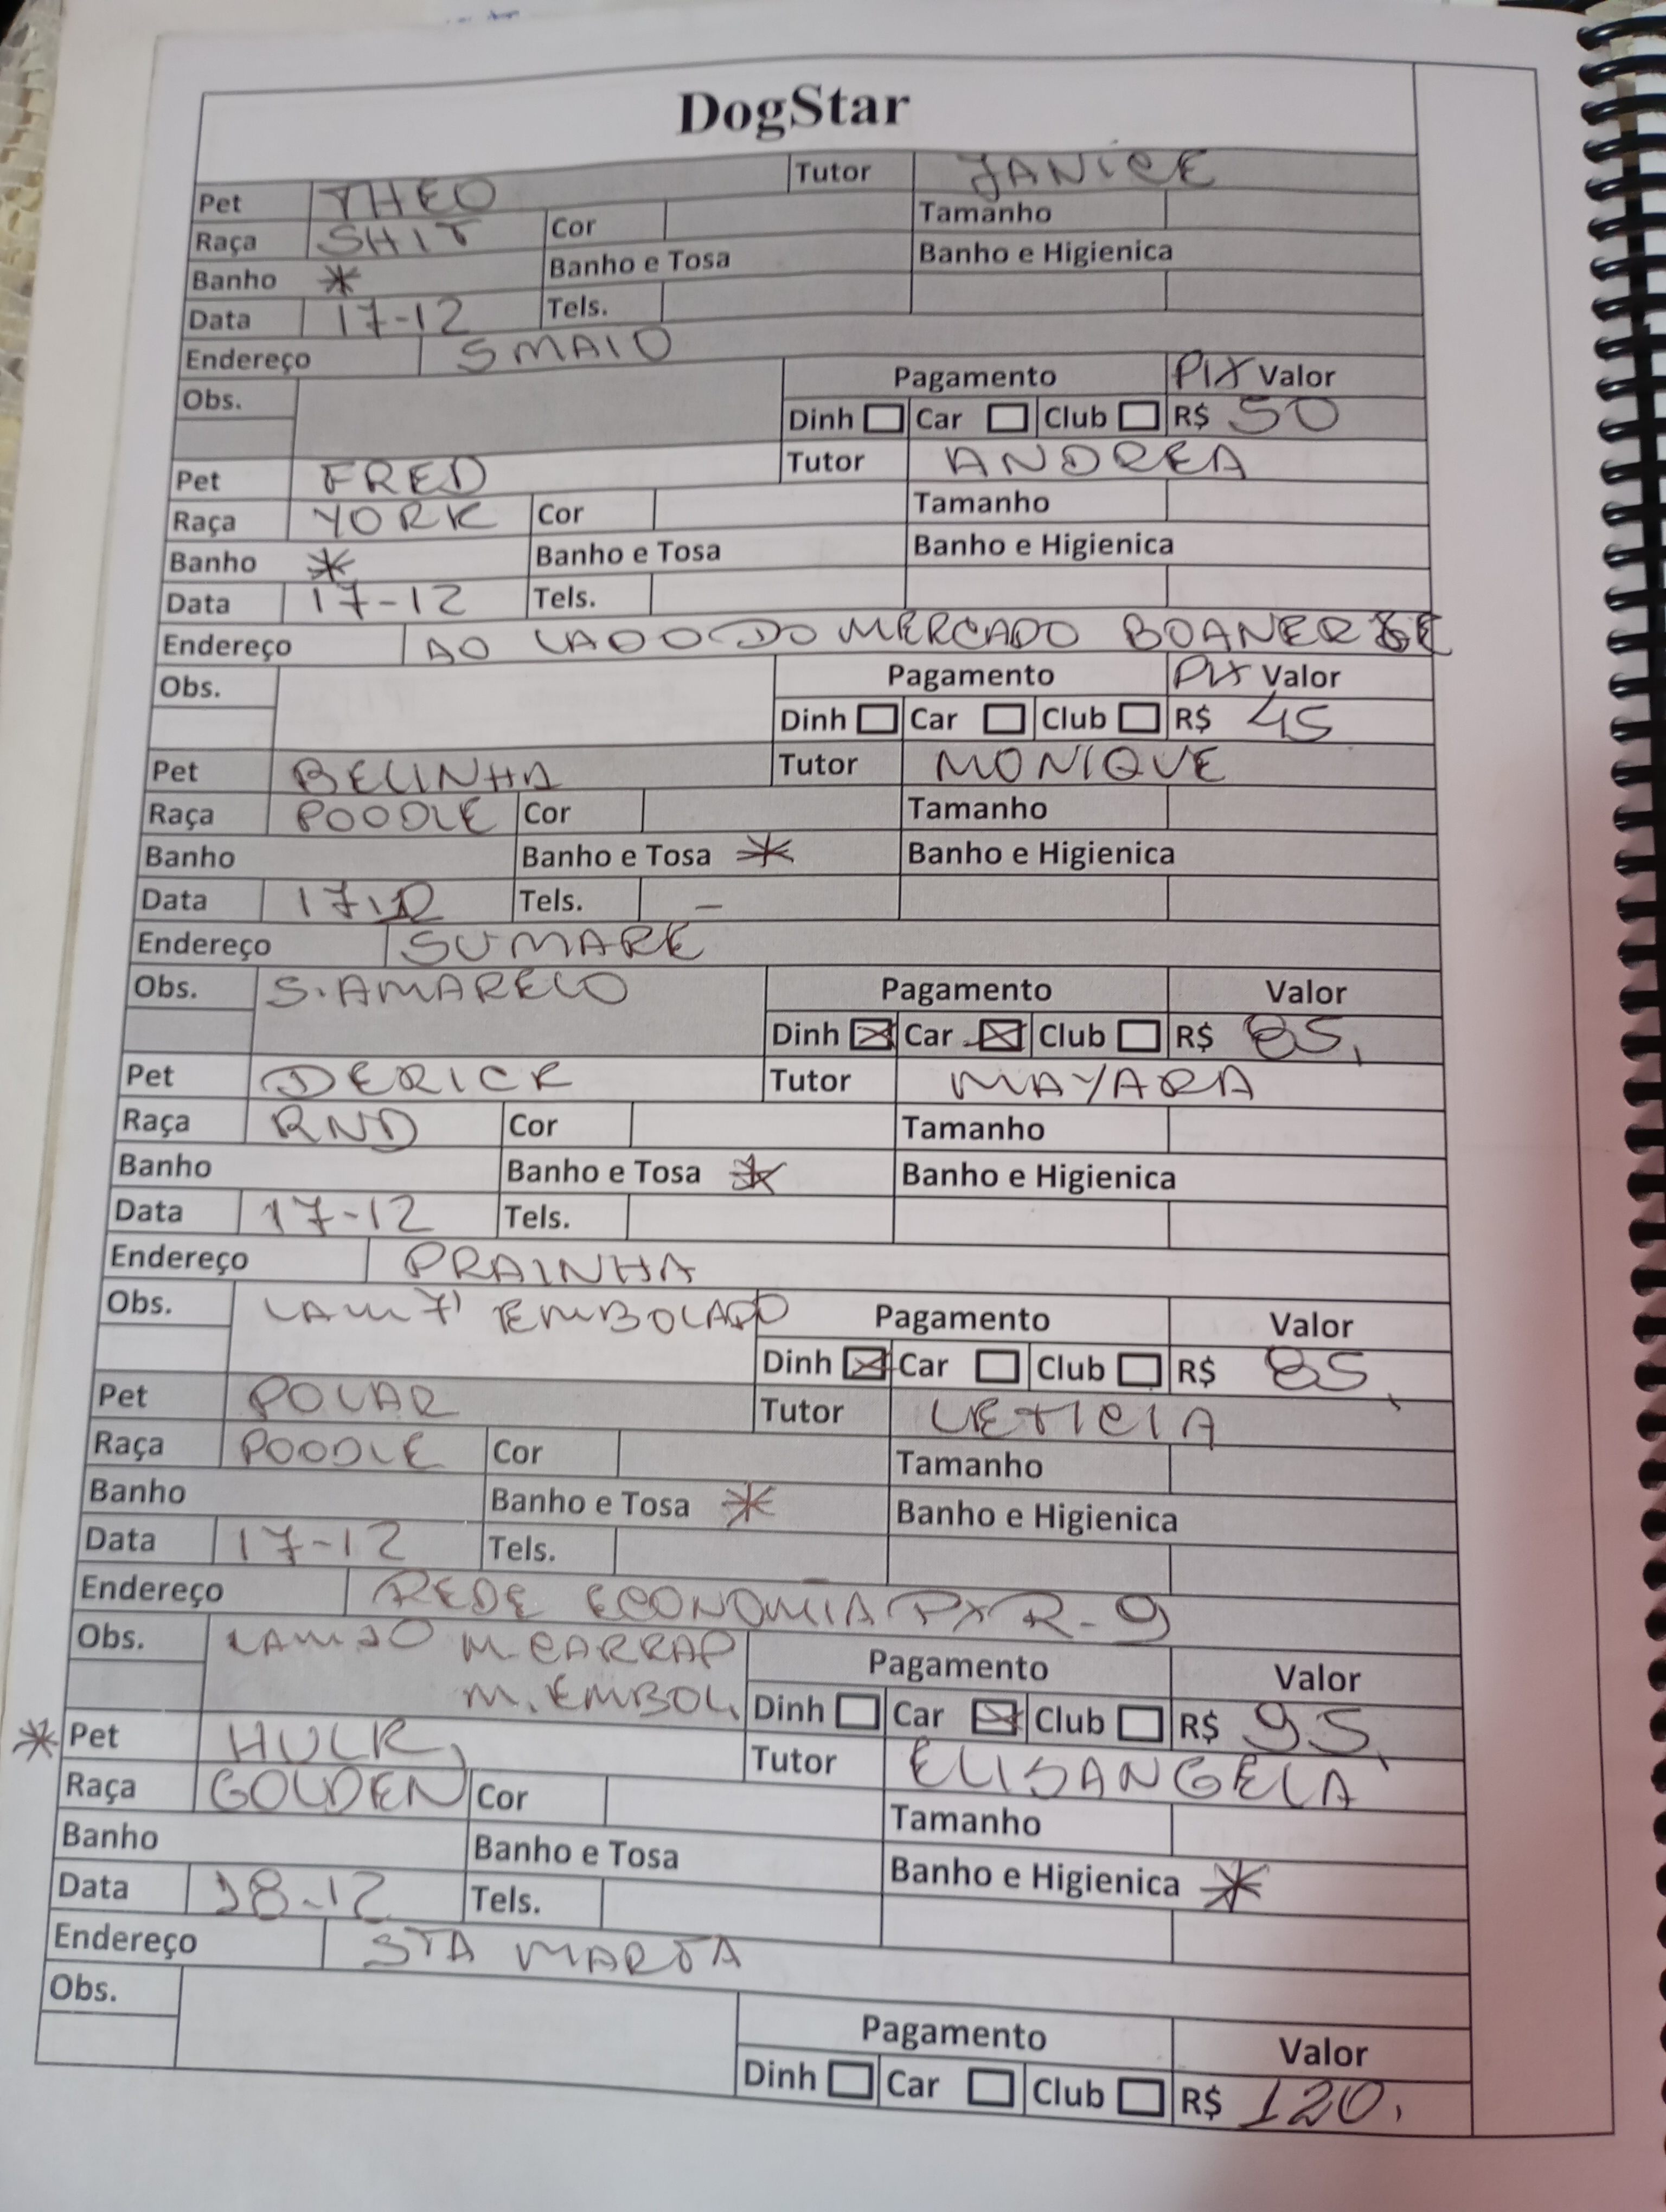 DogStar
Pet THEO Tutor JANICE
Raça SHIT Cor Tamanho
Banho * Banho e Tosa Banho e Higienica
Data 17-12 Tels.
Endereço 5 MAIO
Obs. Pagamento PIX Valor
Dinh Car Club R$ 50
Pet FRED Tutor ANDREA
Raça YORK Cor Tamanho
Banho * Banho e Tosa Banho e Higienica
Data 17-12 Tels.
Endereço AO LADO DO MERCADO
Obs. Pagamento PIX Valor
Dinh Car Club R$ 45
Pet BELINHA Tutor MONIQUE
Raça POODLE Cor Tamanho
Banho Banho e Tosa * Banho e Higienica
Data 17.12 Tels. –
Endereço SUMARE
Obs. S. AMARELO Pagamento Valor
Dinh Car Club R$ 85,
Pet DERICK Tutor MAYARA
Raça RND Cor Tamanho
Banho Banho e Tosa * Banho e Higienica
Data 17-12 Tels.
Endereço PRAINHA
Obs. LAM 7 EMBOLADO Pagamento Valor
Dinh Car Club R$ 85,
Pet POLAR Tutor LETICIA
Raça POODLE Cor Tamanho
Banho Banho e Tosa * Banho e Higienica
Data 17-12 Tels.
Endereço REDE ECONOMIA PX R-9
Obs. LAM 10 M. CARRAP Pagamento Valor
M. EMBOL. Dinh Car Club R$ 95,
* Pet HULK, Tutor ELISANGELA
Raça GOLDEN Cor Tamanho
Banho Banho e Tosa Banho e Higienica *
Data 18-12 Tels.
Endereço STA MARTA
Obs. Pagamento Valor
Dinh Car Club R$ 120,